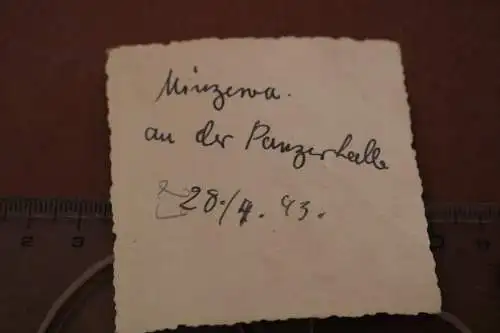 Minzewa.
an der Panzerhalle
28./4. 43.